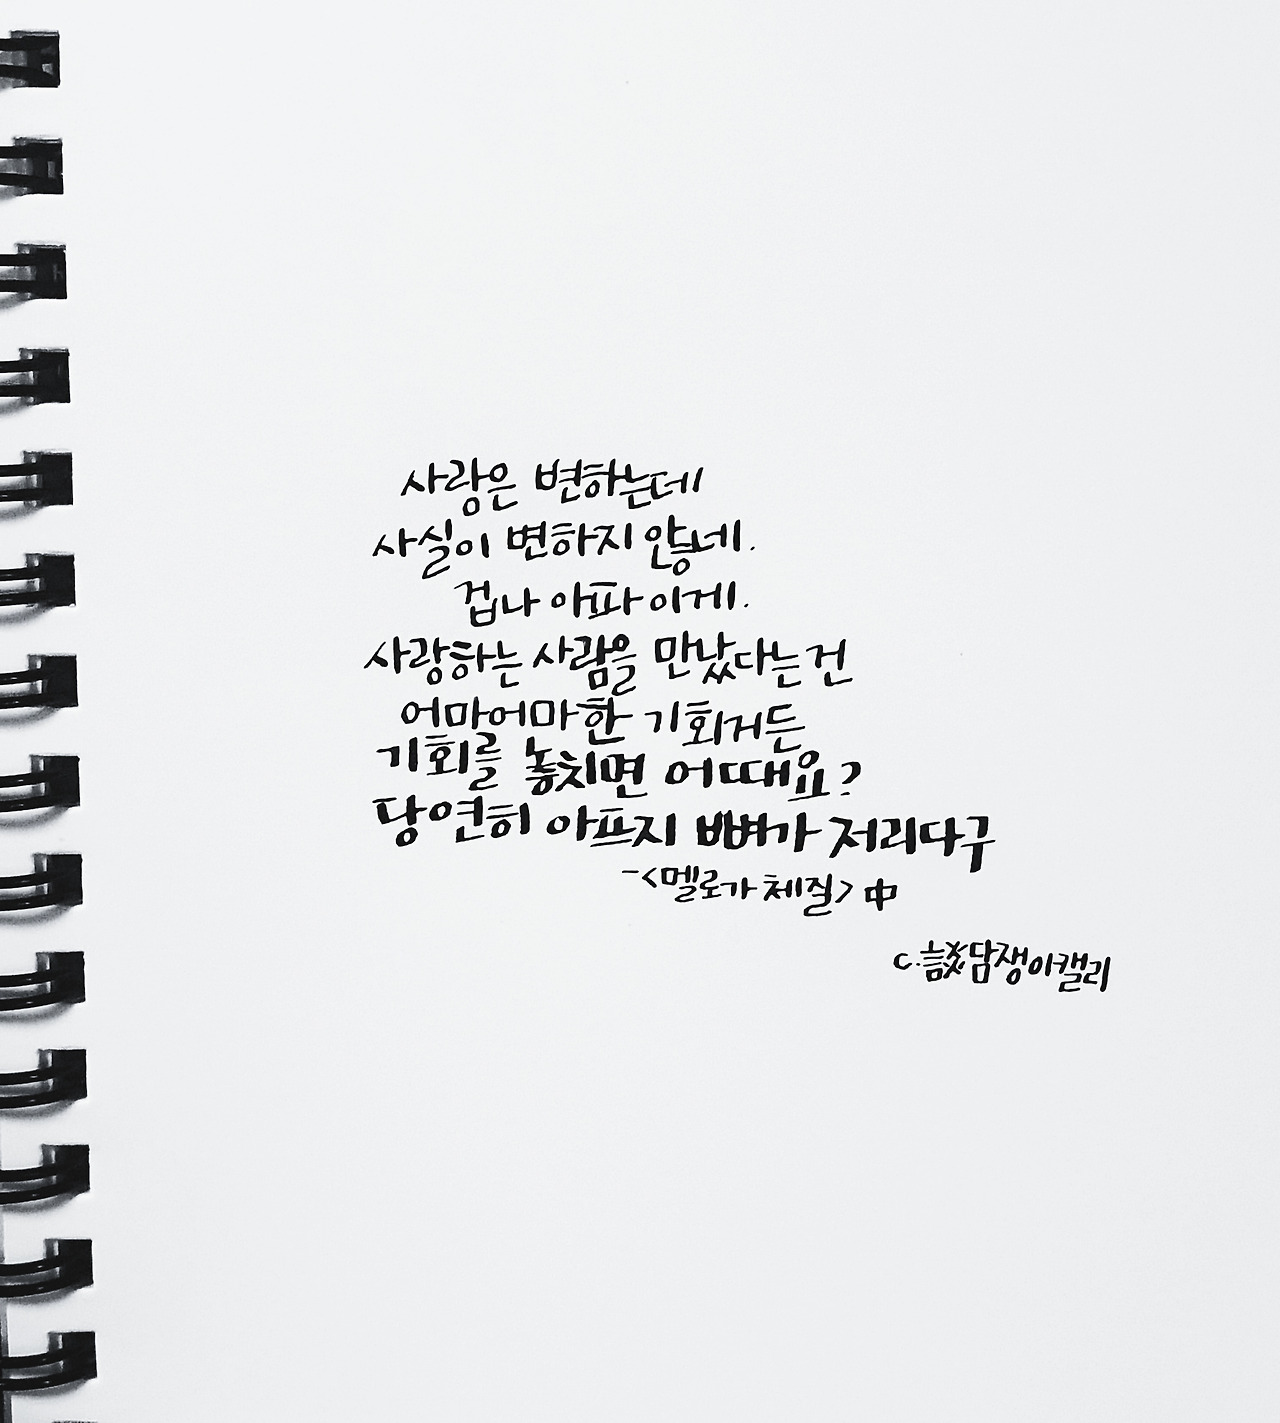 사랑은 변하는데
사실이 변하지 않네.
겁나 아파 이게.
사랑하는 사람을 만났다는건
어마어마한 기회거든
기회를 놓치면 어때요?
당연히 아프지 뼈가 저리다구
-<멜로가 체질> 中
c.談담쟁이캘리